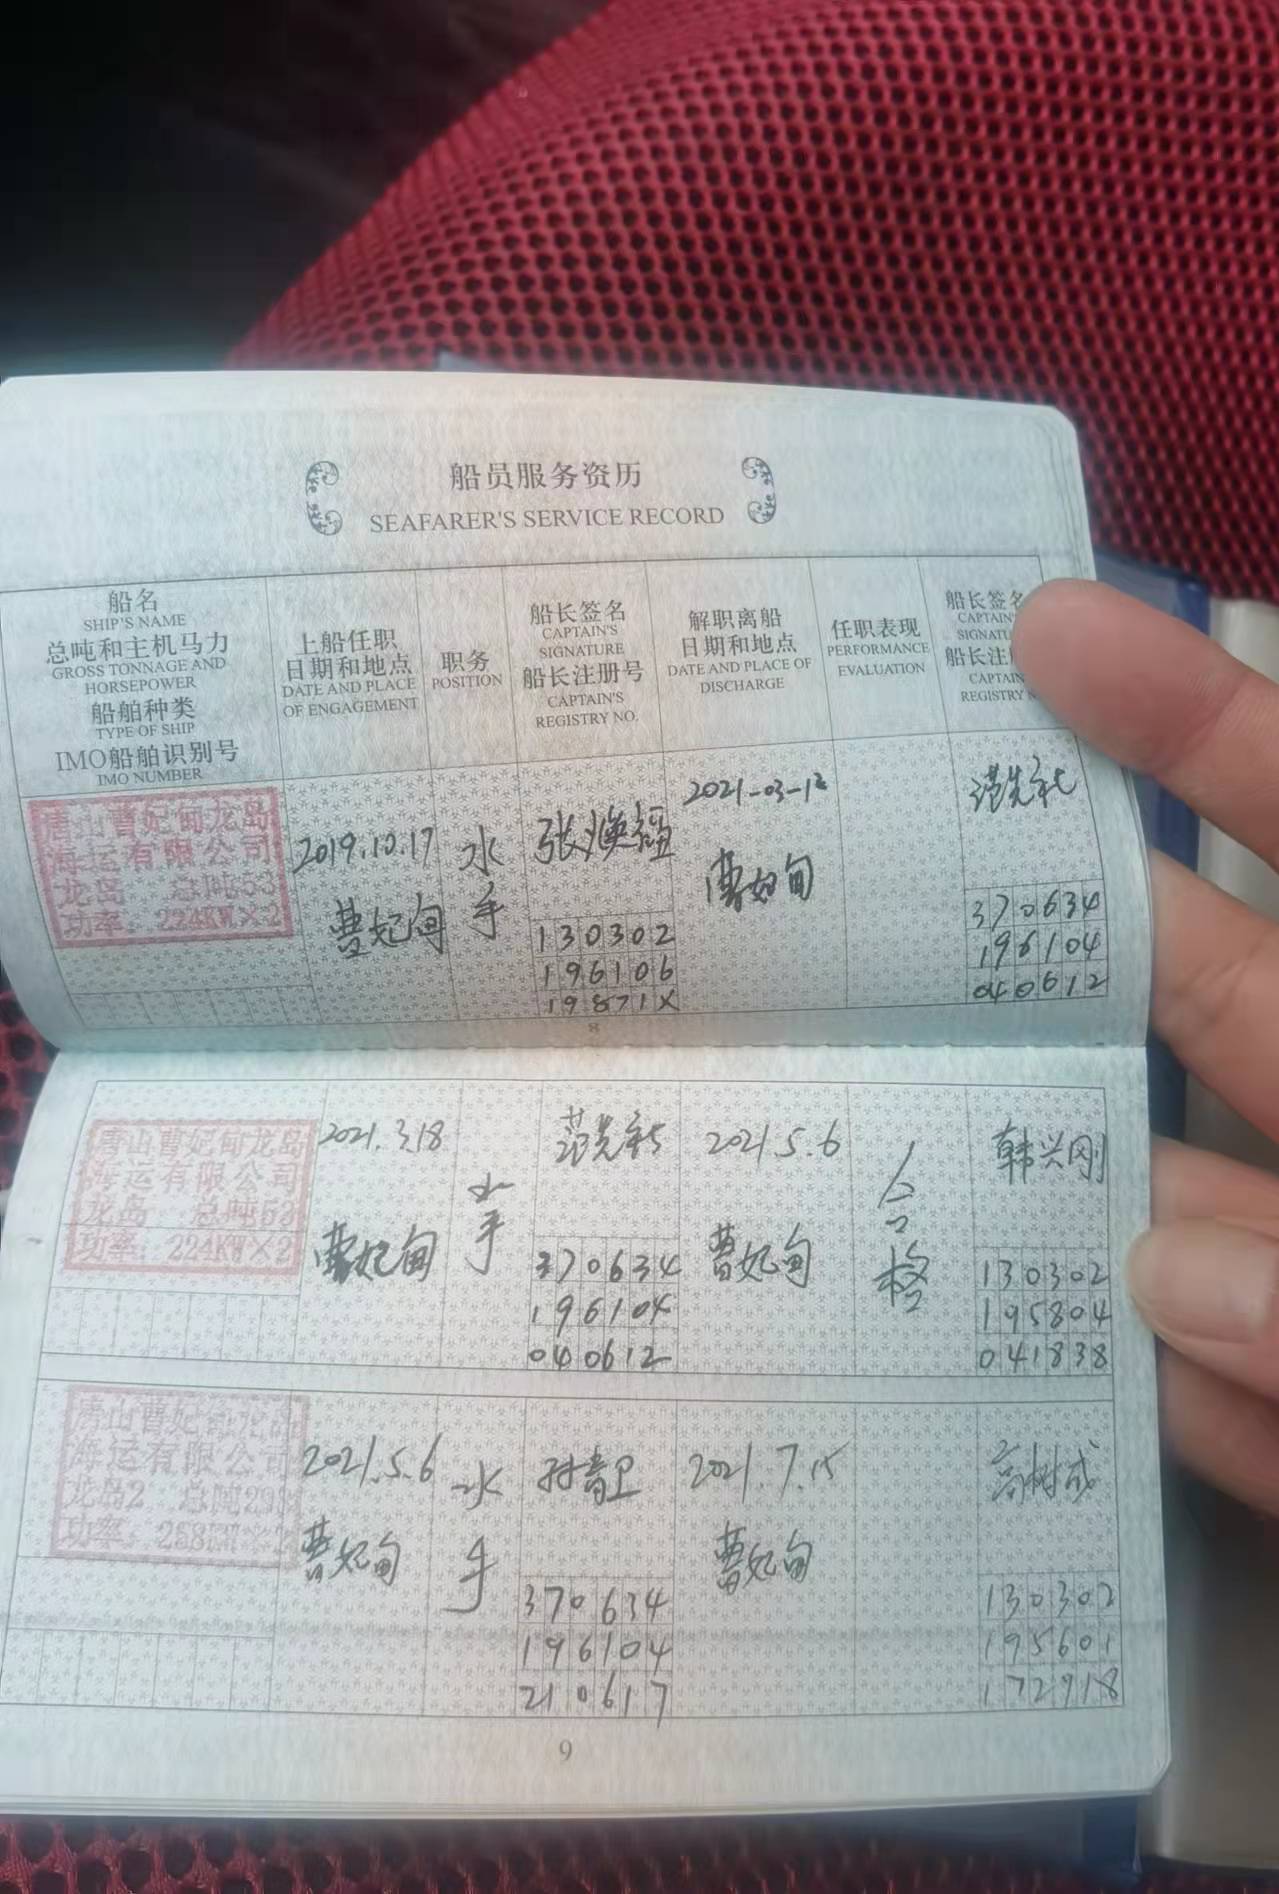 船员服务资历
SEAFARER'S SERVICE RECORD
船名
SHIP'S NAME
总吨和主机马力
GROSS TONNAGE AND
HORSEPOWER
船舶种类
TYPE OF SHIP
IMO船舶识别号
IMO NUMBER
上船任职
日期和地点
DATE AND PLACE
OF ENGAGEMENT
职务
POSITION
船长签名
CAPTAIN'S
SIGNATURE
船长注册号
CAPTAIN'S
REGISTRY NO.
解职离船
日期和地点
DATE AND PLACE OF
DISCHARGE
任职表现
PERFORMANCE
EVALUATION
船长签名
CAPTAIN'S
船长注
CAPTAIN
REGISTRY
唐山曹妃甸龙岛
海运有限公司
龙岛 总吨53
功率: 224KW×2
2019.10.17
曹妃甸
水手
张焕福
130302
196106
19871X
2021-03-18
曹妃甸
370634
196104
040612
8
唐山曹妃甸龙岛
海运有限公司
龙岛 总吨53
功率: 224KW×2
2021.3.18
曹妃甸
水手
370634
196104
040612
2021.5.6
曹妃甸
合格
韩兴刚
130302
195804
041838
唐山曹妃甸龙岛
海运有限公司
龙岛2 总吨298
功率: 258KW×2
2021.5.6
曹妃甸
水手
370634
196104
210617
2021.7.15
曹妃甸
高树成
130302
195601
172918
9